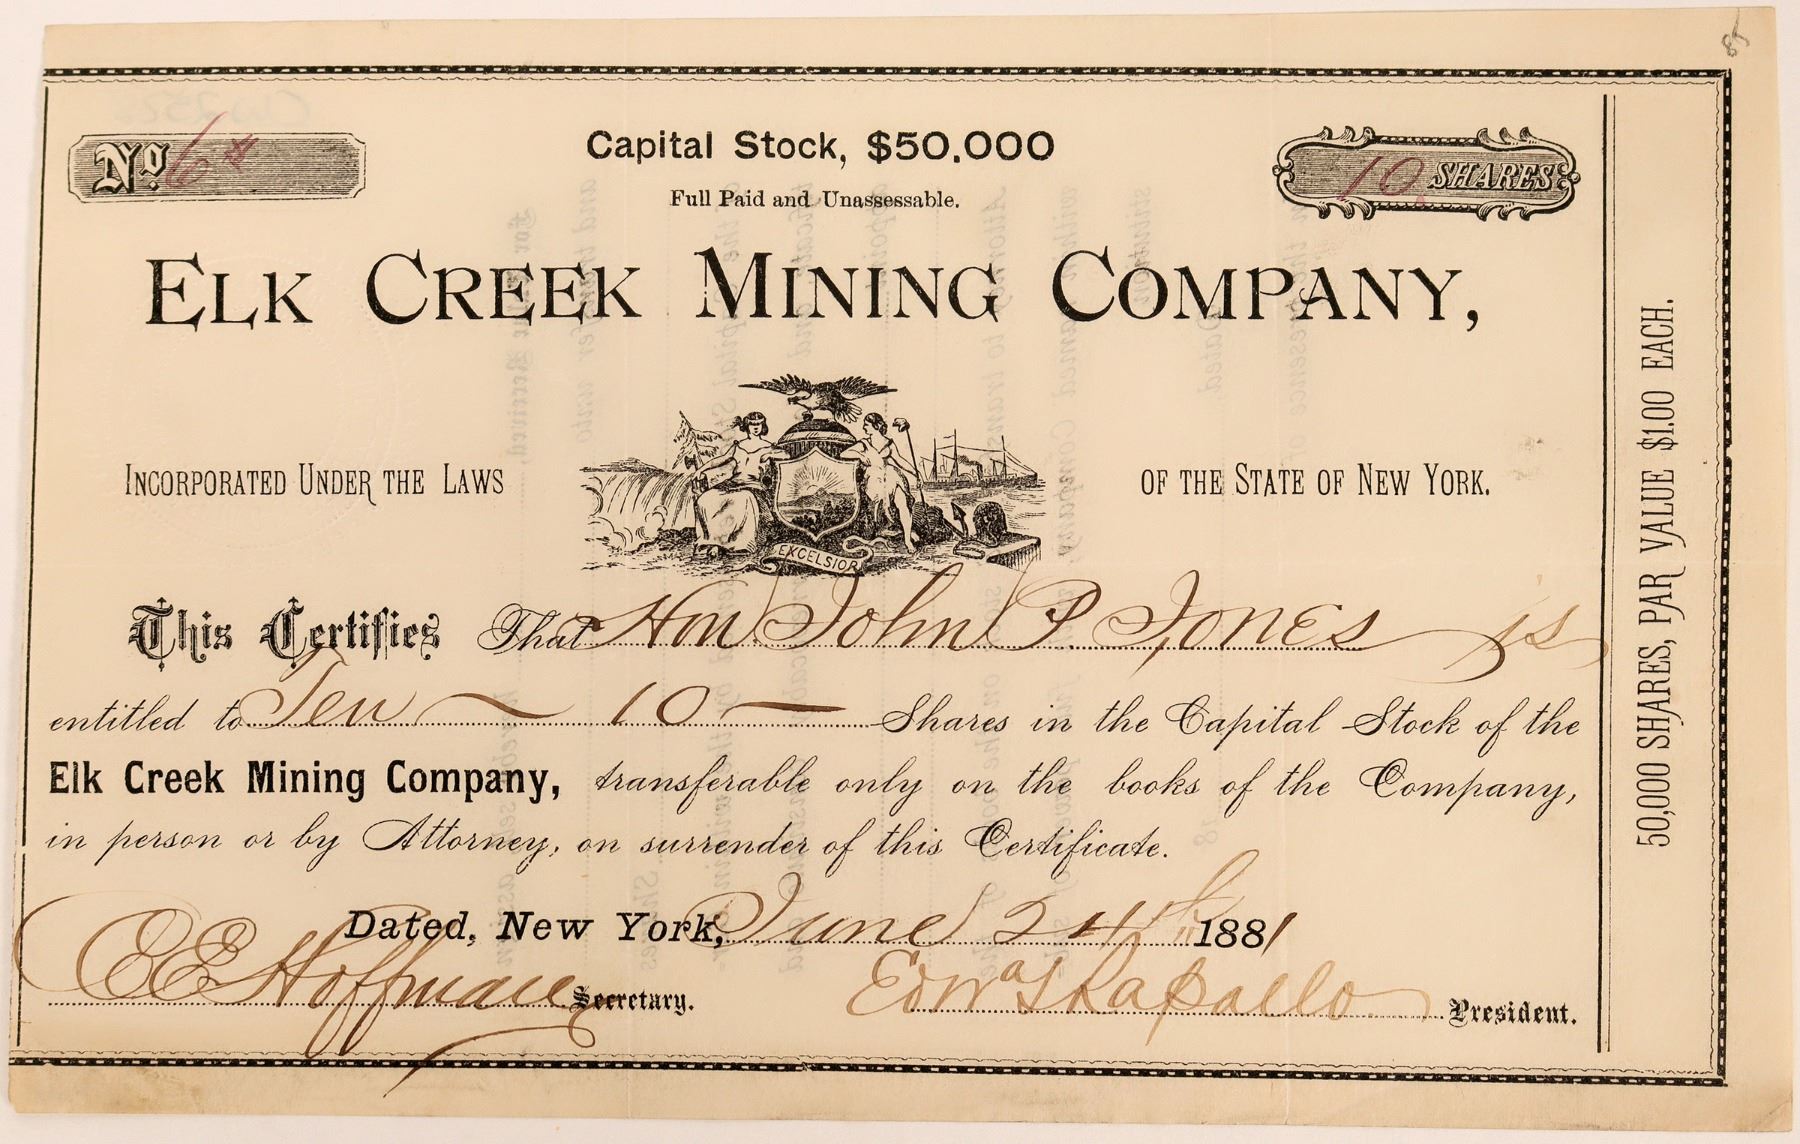 85
No. 6
10 SHARES
Capital Stock, $50.000
Full Paid and Unassessable.
ELK CREEK MINING COMPANY,
INCORPORATED UNDER THE LAWS OF THE STATE OF NEW YORK.
EXCELSIOR
This Certifies That Hon John P. Jones is
entitled to Ten ~ 10 — Shares in the Capital Stock of the
Elk Creek Mining Company, transferable only on the books of the Company,
in person or by Attorney, on surrender of this Certificate.
Dated, New York, June 24th 1881
C E Hoffman Secretary.
Edwd L Rapallo President.
50,000 SHARES, PAR VALUE $1.00 EACH.